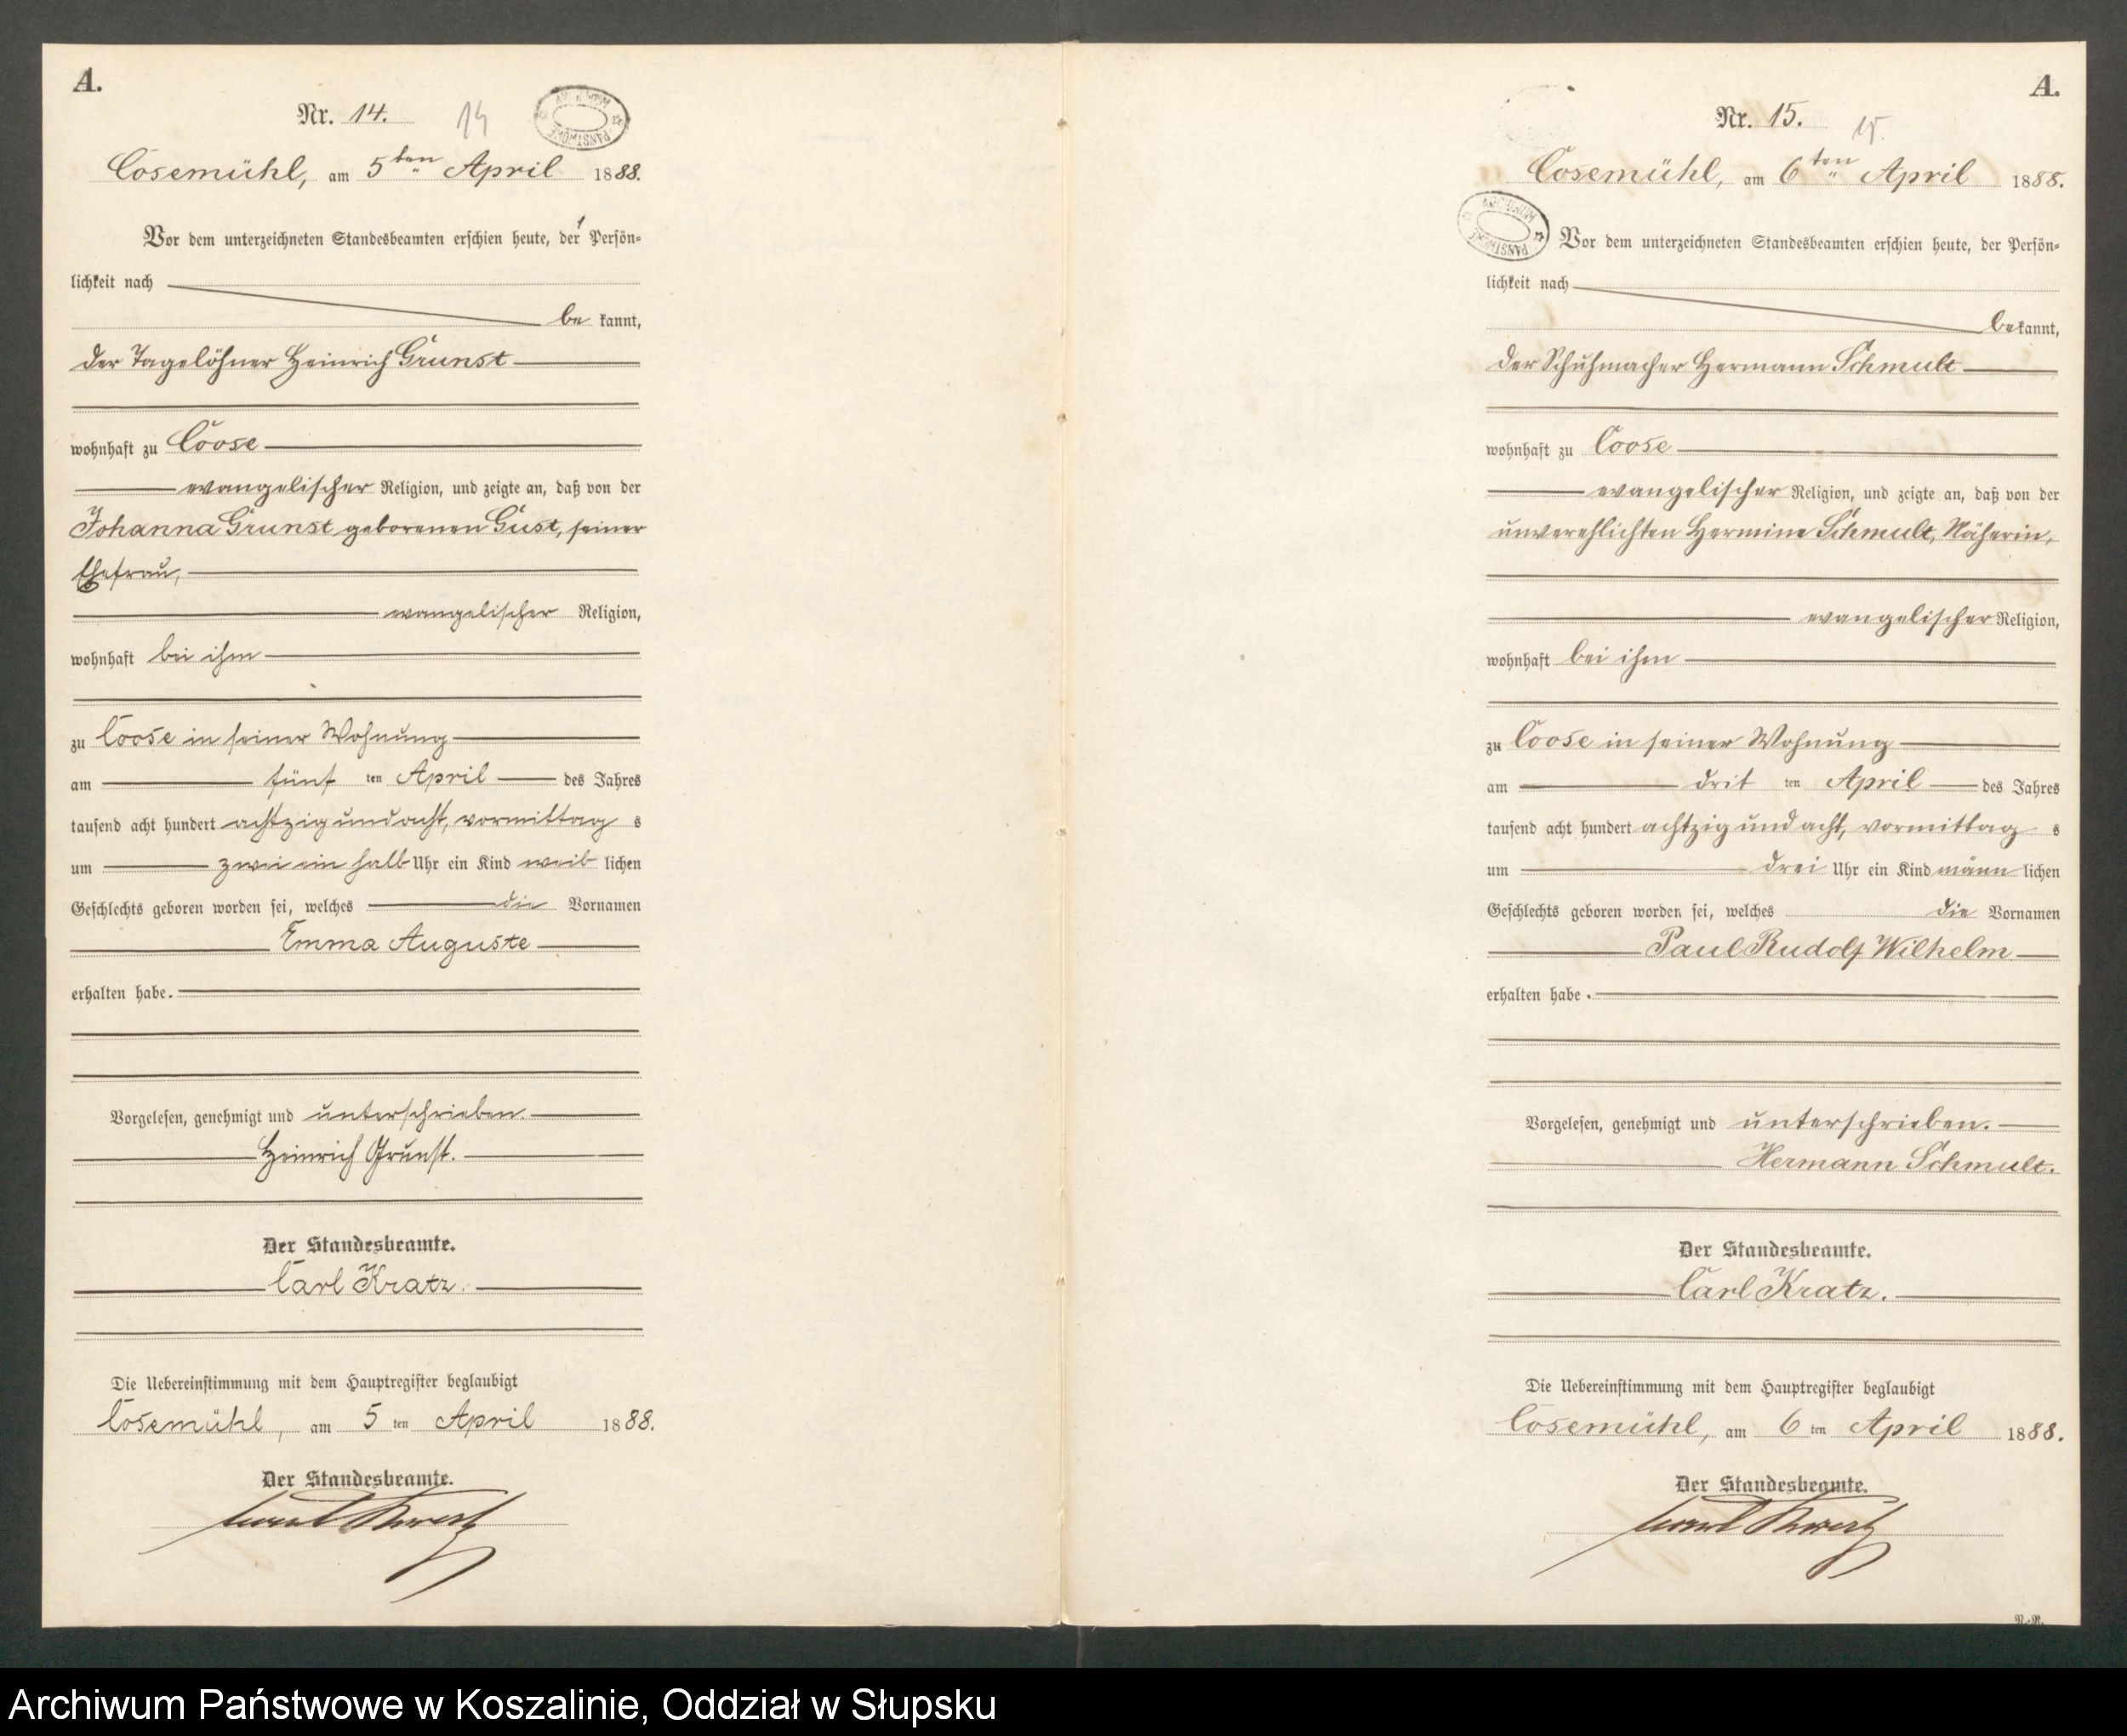 A.
Nr. 14.
14
Cosemühl, am 5ten April 1888.
Vor dem unterzeichneten Standesbeamten erschien heute, der Persön=
lichkeit nach
be kannt,
der Tagelöhner Heinrich Grunst
wohnhaft zu Coose
evangelischer Religion, und zeigte an, daß von der
Johanna Grunst geborenen Gust, seiner
Ehefrau,
evangelischer Religion,
wohnhaft bei ihm
zu Coose in seiner Wohnung
am fünf ten April des Jahres
tausend acht hundert achtzig und acht, vormittag s
um zwei ein halb Uhr ein Kind weib lichen
Geschlechts geboren worden sei, welches die Vornamen
Emma Auguste
erhalten habe.
Vorgelesen, genehmigt und unterschrieben.
Heinrich Grunst.
Der Standesbeamte.
Carl Kratz.
Die Uebereinstimmung mit dem Hauptregister beglaubigt
Cosemühl, am 5 ten April 1888.
Der Standesbeamte.
Carl Kratz
A.
Nr. 15.
15.
Cosemühl, am 6ten April 1888.
Vor dem unterzeichneten Standesbeamten erschien heute, der Persön=
lichkeit nach
bekannt,
der Schuhmacher Hermann Schmult
wohnhaft zu Coose
evangelischer Religion, und zeigte an, daß von der
unverehlichten Hermine Schmult, Näherin,
evangelischer Religion,
wohnhaft bei ihm
zu Coose in seiner Wohnung
am drit ten April des Jahres
tausend acht hundert achtzig und acht, vormittag s
um drei Uhr ein Kind männ lichen
Geschlechts geboren worden sei, welches die Vornamen
Paul Rudolf Wilhelm
erhalten habe.
Vorgelesen, genehmigt und unterschrieben.
Hermann Schmult.
Der Standesbeamte.
Carl Kratz.
Die Uebereinstimmung mit dem Hauptregister beglaubigt
Cosemühl, am 6 ten April 1888.
Der Standesbeamte.
Carl Kratz
Archiwum Państwowe w Koszalinie, Oddział w Słupsku